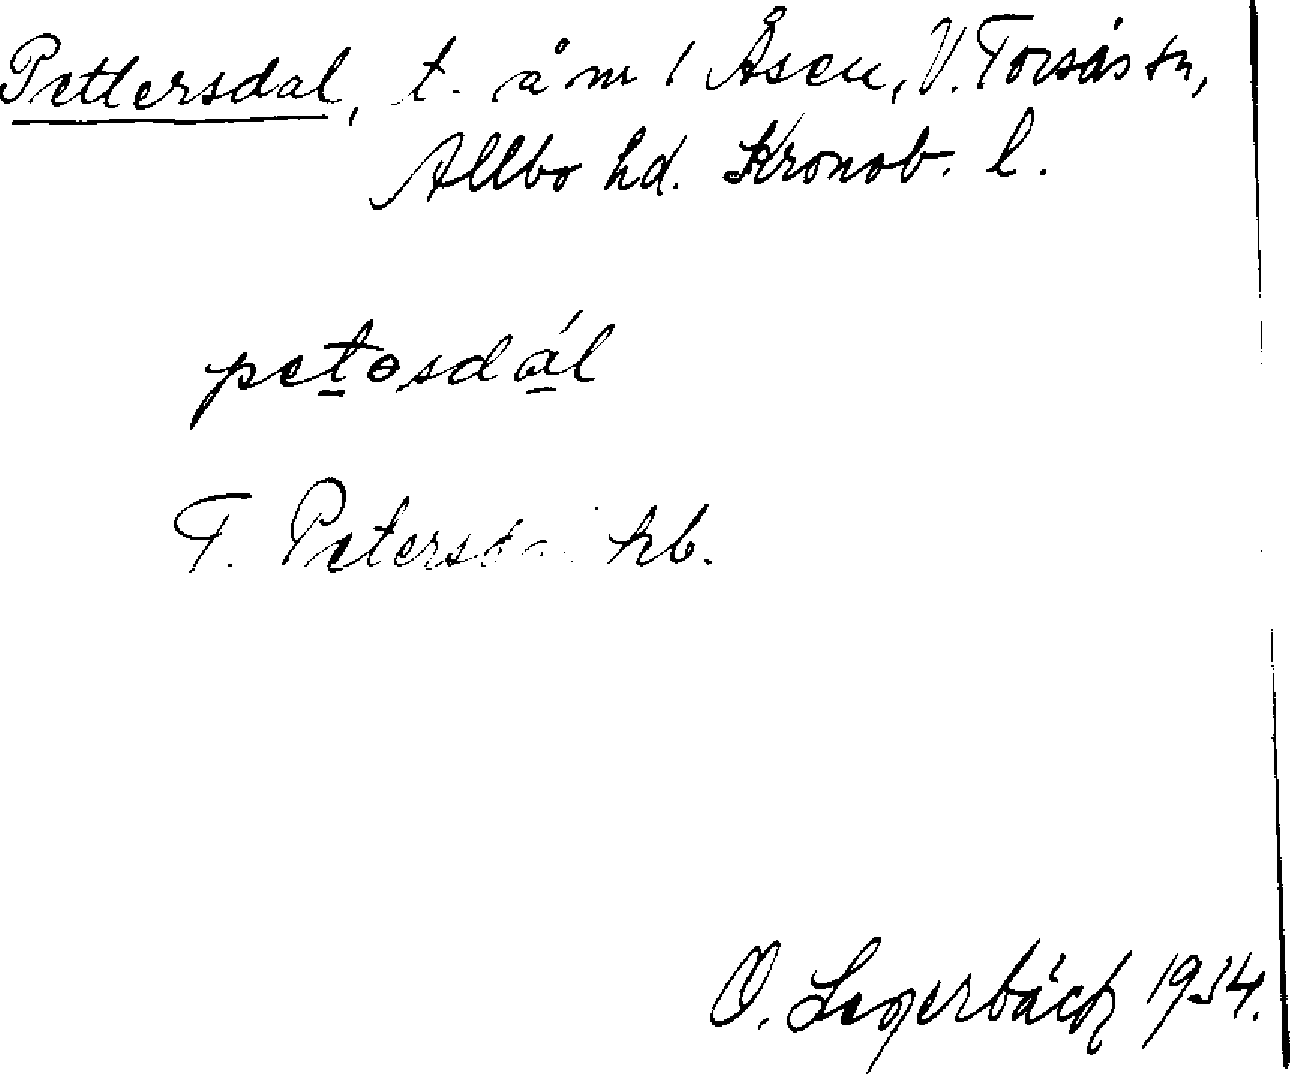 Pettersdal, t. å m 1 Åsen, V. Torsås sn,
Allbo hd. Kronob. l.
petɵsdál
T. Petersdal hb.
O. Lagerbäck 1934.